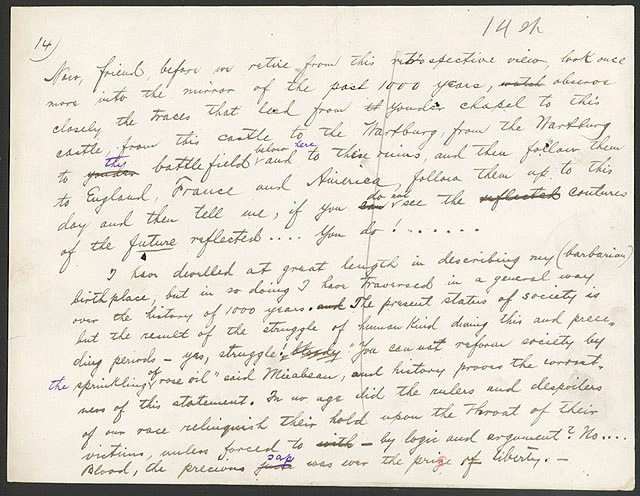 14)
14 sh
Now, friend, before we retire from this retrospective view, look once
more into the mirror of the past 1000 years, watch observe
closely the traces that lead from it yonder chapel to this
castle, from this castle to the Wartburg, from the Wartburg
to yonder this battlefield below here and to these ruins, and then follow them
to England, France and America, follow them up to this
day and then tell me, if you can do not see the reflected contures
of the future reflected.... You do!.......
I have dwelled at great length in describing my (barbarian)
birthplace, but in so doing I have traversed in a general way
over the history of 1000 years. and The present status of society is
but the result of the struggle of human kind during this and prece-
ding periods – yes, struggle! bloody "You can not reform society by
the sprinkling of rose oil" said Mirabeau, and history proves the correct-
ness of this statement. In no age did the rulers and despoilers
of our race relinquish their hold upon the throat of their
victims, unless forced to with – by logic and argument? No....
Blood, the precious sap was ever the price of liberty. –